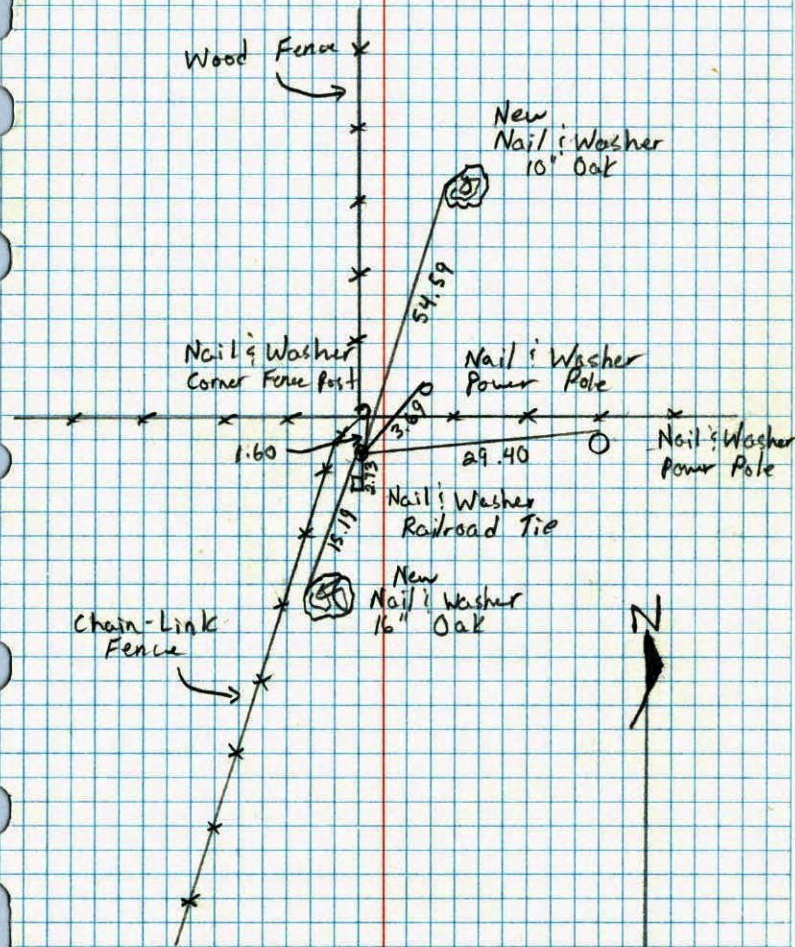 Wood Fence
New
Nail & Washer
10" Oak
54.59
Nail & Washer
Corner Fence Post
Nail & Washer
Power Pole
3.69
1.60
29.40
Nail & Washer
Power Pole
2.73
Nail & Washer
Railroad Tie
15.19
New
Nail & Washer
16" Oak
Chain-Link
Fence
N